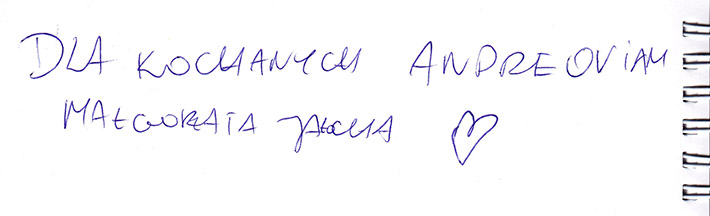 DLA KOCHANYCH ANDREOVIAM
MAŁGORZATA